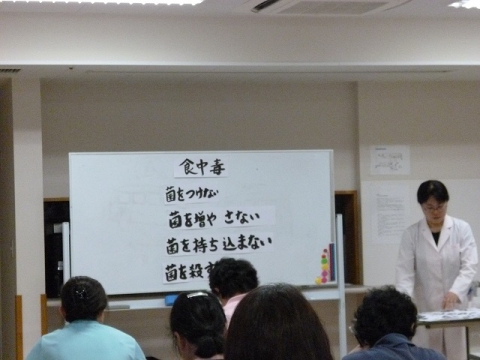 食中毒
菌をつけない
菌を増やさない
菌を持ち込まない
菌を殺す